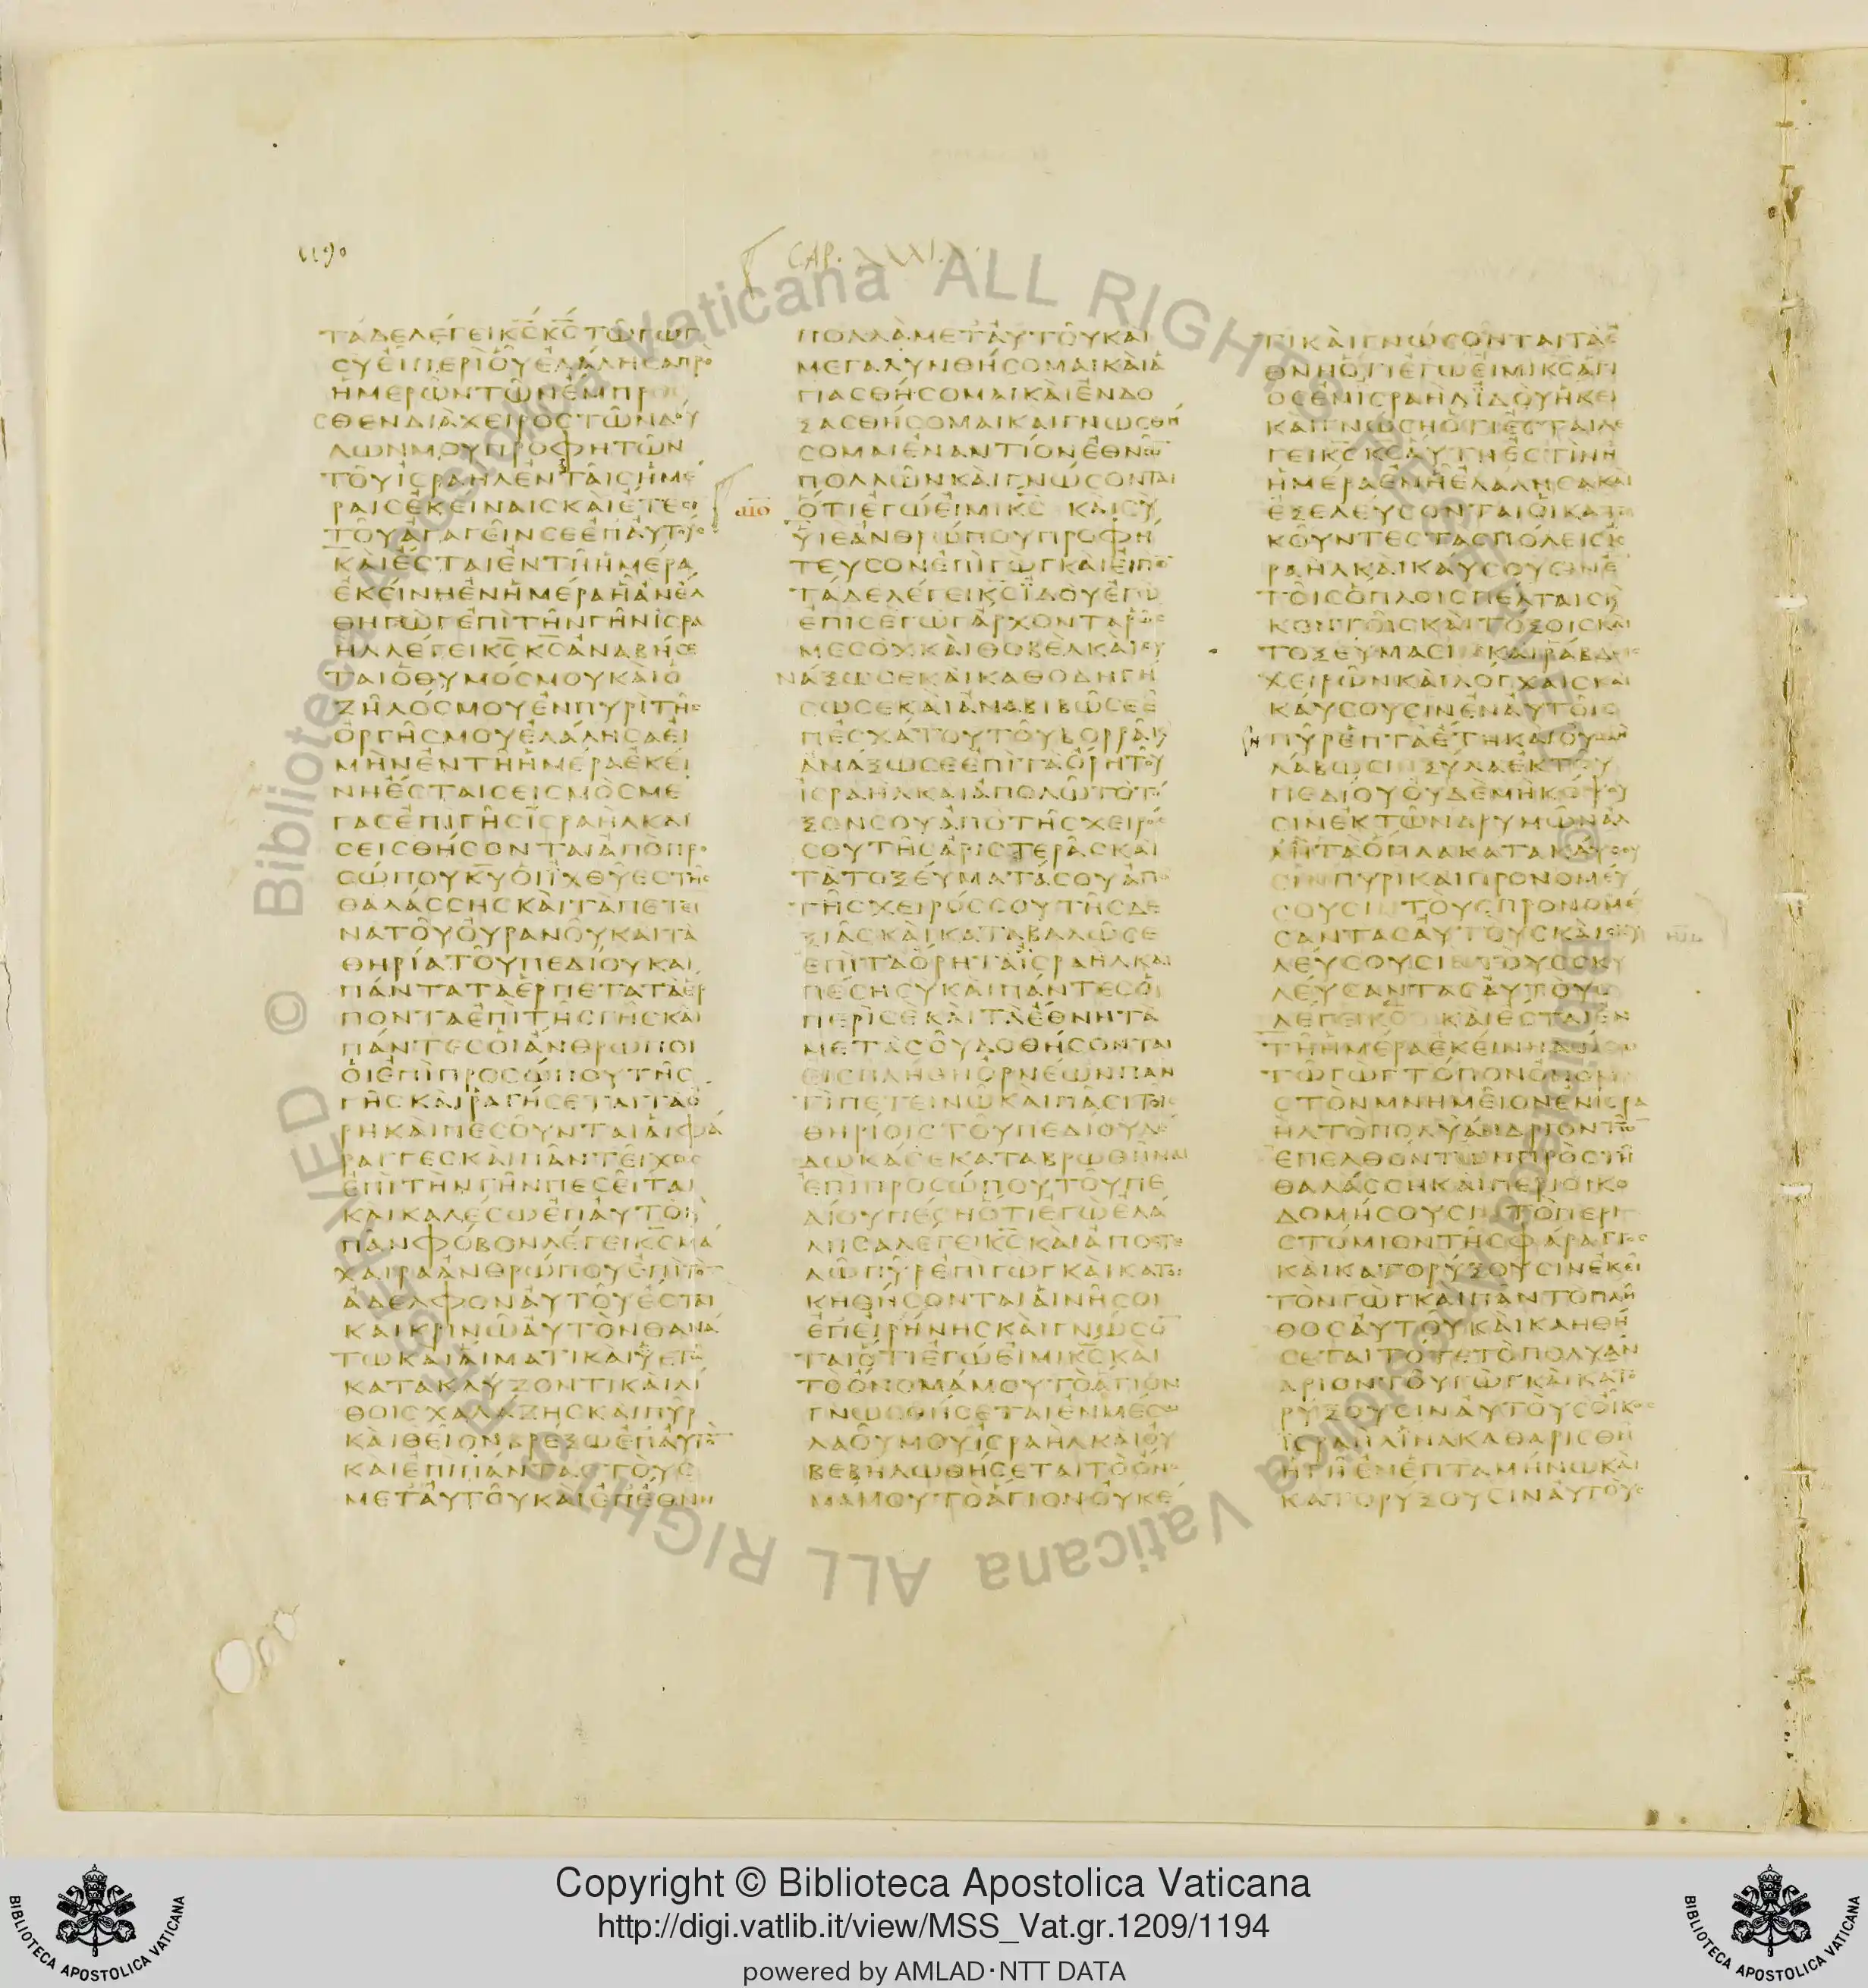 1190
CAP. XXXIX.
ΤΑΔΕΛΕΓΕΙΚ̅Ϲ̅Κ̅Ϲ̅ΤΩΓΩΓ
ϹΥΕΙΠΕΡΙΟΥΕΛΑΛΗϹΑΠΡΟ
ΗΜΕΡΩΝΤΩΝΕΜΠΡΟ
ϹΘΕΝΔΙΑΧΕΙΡΟϹΤΩΝΔΟΥ
ΛΩΝΜΟΥΠΡΟΦΗΤΩΝ
ΤΟΥΙϹΡΑΗΛΕΝΤΑΙϹΗΜΕ
ΡΑΙϹΕΚΕΙΝΑΙϹΚΑΙΕΤΕϹΙ
ΤΟΥΑΓΑΓΕΙΝϹΕΕΠΑΥΤΟΥϹ
ΚΑΙΕϹΤΑΙΕΝΤΗΗΜΕΡΑ
ΕΚΕΙΝΗΕΝΗΜΕΡΑΗΑΝΕΛ
ΘΗΓΩΓΕΠΙΤΗΝΓΗΝΙϹΡΑ
ΗΛΛΕΓΕΙΚ̅Ϲ̅Κ̅Ϲ̅ΑΝΑΒΗϹΕ
ΤΑΙΟΘΥΜΟϹΜΟΥΚΑΙΟ
ΖΗΛΟϹΜΟΥΕΝΠΥΡΙΤΗϹ
ΟΡΓΗϹΜΟΥΕΛΑΛΗϹΑΕΙ
ΜΗΝΕΝΤΗΗΜΕΡΑΕΚΕΙ
ΝΗΕϹΤΑΙϹΕΙϹΜΟϹΜΕ
ΓΑϹΕΠΙΓΗϹΙϹΡΑΗΛΚΑΙ
ϹΕΙϹΘΗϹΟΝΤΑΙΑΠΟΠΡΟ
ϹΩΠΟΥΚ̅Υ̅ΟΙΙΧΘΥΕϹΤΗϹ
ΘΑΛΑϹϹΗϹΚΑΙΤΑΠΕΤΕΙ
ΝΑΤΟΥΟΥΡΑΝΟΥΚΑΙΤΑ
ΘΗΡΙΑΤΟΥΠΕΔΙΟΥΚΑΙ
ΠΑΝΤΑΤΑΕΡΠΕΤΑΤΑΕΡ
ΠΟΝΤΑΕΠΙΤΗϹΓΗϹΚΑΙ
ΠΑΝΤΕϹΟΙΑΝΘΡΩΠΟΙ
ΟΙΕΠΙΠΡΟϹΩΠΟΥΤΗϹ
ΓΗϹΚΑΙΡΑΓΗϹΕΤΑΙΤΑΟ
ΡΗΚΑΙΠΕϹΟΥΝΤΑΙΑΙΦΑ
ΡΑΓΓΕϹΚΑΙΠΑΝΤΕΙΧΟϹ
ΕΠΙΤΗΝΓΗΝΠΕϹΕΙΤΑΙ
ΚΑΙΚΑΛΕϹΩΕΠΑΥΤΟΝ
ΠΑΝΦΟΒΟΝΛΕΓΕΙΚ̅Ϲ̅ΜΑ
ΧΑΙΡΑΑΝΘΡΩΠΟΥΕΠΙΤΟΝ
ΑΔΕΛΦΟΝΑΥΤΟΥΕϹΤΑΙ
ΚΑΙΚΡΙΝΩΑΥΤΟΝΘΑΝΑ
ΤΩΚΑΙΑΙΜΑΤΙΚΑΙΥΕΤΩ
ΚΑΤΑΚΛΥΖΟΝΤΙΚΑΙΛΙ
ΘΟΙϹΧΑΛΑΖΗϹΚΑΙΠΥΡ
ΚΑΙΘΕΙΟΝΒΡΕΞΩΕΠΑΥΤΟΝ
ΚΑΙΕΠΙΠΑΝΤΑϹΤΟΥϹ
ΜΕΤΑΥΤΟΥΚΑΙΕΠΕΘΝΗ
ΠΟΛΛΑΜΕΤΑΥΤΟΥΚΑΙ
ΜΕΓΑΛΥΝΘΗϹΟΜΑΙΚΑΙΑ
ΓΙΑϹΘΗϹΟΜΑΙΚΑΙΕΝΔΟ
ΞΑϹΘΗϹΟΜΑΙΚΑΙΓΝΩϹΘΗ
ϹΟΜΑΙΕΝΑΝΤΙΟΝΕΘΝΩ̅
ΠΟΛΛΩΝΚΑΙΓΝΩϹΟΝΤΑΙ
ΟΤΙΕΓΩΕΙΜΙΚ̅Ϲ̅ ΚΑΙϹΥ
ΥΙΕΑΝΘΡΩΠΟΥΠΡΟΦΗ
ΤΕΥϹΟΝΕΠΙΓΩΓΚΑΙΕΙΠΟ̅
ΤΑΔΕΛΕΓΕΙΚ̅Ϲ̅ΙΔΟΥΕΓΩ
ΕΠΙϹΕΓΩΓΑΡΧΟΝΤΑΡΩϹ
ΜΕϹΟΧΚΑΙΘΟΒΕΛΚΑΙϹΥ
ΝΑΞΩϹΕΚΑΙΚΑΘΟΔΗΓΗ
ϹΩϹΕΚΑΙΑΝΑΒΙΒΩϹΕΕ
ΠΕϹΧΑΤΟΥΤΟΥΒΟΡΡΑΚ
ΑΝΑΞΩϹΕΕΠΙΤΑΟΡΗΤΟΥ
ΙϹΡΑΗΛΚΑΙΑΠΟΛΩΤΟΤΟ
ΞΟΝϹΟΥΑΠΟΤΗϹΧΕΙΡΟϹ
ϹΟΥΤΗϹΑΡΙϹΤΕΡΑϹΚΑΙ
ΤΑΤΟΞΕΥΜΑΤΑϹΟΥΑΠΟ
ΤΗϹΧΕΙΡΟϹϹΟΥΤΗϹΔΕ
ΞΙΑϹΚΑΙΚΑΤΑΒΑΛΩϹΕ
ΕΠΙΤΑΟΡΗΤΑΙϹΡΑΗΛΚΑΙ
ΠΕϹΗϹΥΚΑΙΠΑΝΤΕϹΟΙ
ΠΕΡΙϹΕΚΑΙΤΑΕΘΝΗΤΑ
ΜΕΤΑϹΟΥΔΟΘΗϹΟΝΤΑΙ
ΕΙϹΠΛΗΘΗΟΡΝΕΩΝΠΑΝ
ΤΙΠΕΤΕΙΝΩΚΑΙΠΑϹΙΤΟΙϹ
ΘΗΡΙΟΙϹΤΟΥΠΕΔΙΟΥΔΕ
ΔΩΚΑϹΕΚΑΤΑΒΡΩΘΗΝΑΙ
ΕΠΙΠΡΟϹΩΠΟΥΤΟΥΠΕ
ΔΙΟΥΠΕϹΗΟΤΙΕΓΩΕΛΑ
ΛΗϹΑΛΕΓΕΙΚ̅Ϲ̅ΚΑΙΑΠΟϹΤΕ
ΛΩΠΥΡΕΠΙΓΩΓΚΑΙΚΑΤΟΙ
ΚΗΘΗϹΟΝΤΑΙΑΙΝΗϹΟΙ
ΕΠΕΙΡΗΝΗϹΚΑΙΓΝΩϹΟ̅
ΤΑΙΟΤΙΕΓΩΕΙΜΙΚ̅Ϲ̅ΚΑΙ
ΤΟΟΝΟΜΑΜΟΥΤΟΑΓΙΟΝ
ΓΝΩϹΘΗϹΕΤΑΙΕΝΜΕϹΩ
ΛΑΟΥΜΟΥΙϹΡΑΗΛΚΑΙΟΥ
ΒΕΒΗΛΩΘΗϹΕΤΑΙΤΟΟΝΟ
ΜΑΜΟΥΤΟΑΓΙΟΝΟΥΚΕ
ΤΙΚΑΙΓΝΩϹΟΝΤΑΙΤΑΕ
ΘΝΗΟΤΙΕΓΩΕΙΜΙΚ̅Ϲ̅ΑΓΙ
ΟϹΕΝΙϹΡΑΗΛΙΔΟΥΗΚΕΙ
ΚΑΙΓΝΩϹΗΟΤΙΕϹΤΑΙΛΕ
ΓΕΙΚ̅Ϲ̅Κ̅Ϲ̅ΑΥΤΗΕϹΤΙΝΗ
ΗΜΕΡΑΕΝΗΕΛΑΛΗϹΑΚΑΙ
ΕΞΕΛΕΥϹΟΝΤΑΙΟΙΚΑΤΟΙ
ΚΟΥΝΤΕϹΤΑϹΠΟΛΕΙϹΙϹ
ΡΑΗΛΚΑΙΚΑΥϹΟΥϹΙΝΕ
ΤΟΙϹΟΠΛΟΙϹΠΕΛΤΑΙϹΚ
ΚΟΝΤΟΙϹΚΑΙΤΟΞΟΙϹΚΑΙ
ΤΟΞΕΥΜΑϹΙ ΚΑΙΡΑΒΔΟΙϹ
ΧΕΙΡΩΝΚΑΙΛΟΓΧΑΙϹΚΑΙ
ΚΑΥϹΟΥϹΙΝΕΝΑΥΤΟΙϹ
ΠΥΡΕΠΤΑΕΤΗΚΑΙΟΥΜΗ
ΛΑΒΩϹΙ ΞΥΛΑΕΚΤΟΥ
ΠΕΔΙΟΥΟΥΔΕΜΗΚΟΨΟΥ
ϹΙΝΕΚΤΩΝΔΡΥΜΩΝΑΛ
ΛΗΤΑΟΠΛΑΚΑΤΑΚΑΥϹΟΥ
ϹΙΝΠΥΡΙΚΑΙΠΡΟΝΟΜΕΥ
ϹΟΥϹΙ ΤΟΥϹΠΡΟΝΟΜΕΥ
ϹΑΝΤΑϹΑΥΤΟΥϹΚΑΙϹΚΥ
ΛΕΥϹΟΥϹΙ ΤΟΥϹϹΚΥ
ΛΕΥϹΑΝΤΑϹΑΥΤΟΥϹ
ΛΕΓΕΙΚ̅Ϲ̅ ΚΑΙΕϹΤΑΙΕΝ
ΤΗΗΜΕΡΑΕΚΕΙΝΗΔΩϹΩ
ΤΩΓΩΓΤΟΠΟΝΟΝΟΜΑ
ϹΤΟΝΜΝΗΜΕΙΟΝΕΝΙϹΡΑ
ΗΛΤΟΠΟΛΥΑΝΔΡΙΟΝΤΩ̅
ΕΠΕΛΘΟΝΤΩΝΠΡΟϹΤΗ
ΘΑΛΑϹϹΗΚΑΙΠΕΡΙΟΙΚΟ
ΔΟΜΗϹΟΥϹΙΝΤΟΠΕΡΙ
ϹΤΟΜΙΟΝΤΗϹΦΑΡΑΓΓΟϹ
ΚΑΙΚΑΤΟΡΥΞΟΥϹΙΝΕΚΕΙ
ΤΟΝΓΩΓΚΑΙΠΑΝΤΟΠΛΗ
ΘΟϹΑΥΤΟΥΚΑΙΚΛΗΘΗ
ϹΕΤΑΙΤΟΤΕΤΟΠΟΛΥΑΝ
ΔΡΙΟΝΤΟΥΓΩΓΚΑΙΚΑΤΟ
ΡΥΞΟΥϹΙΝΑΥΤΟΥϹΟΙΚΟϹ
ΙϹΡΑΗΛΙΝΑΚΑΘΑΡΙϹΘΗ
ΗΓΗΕΝΕΠΤΑΜΗΝΩΚΑΙ
ΚΑΤΟΡΥΞΟΥϹΙΝΑΥΤΟΥϹ
© Biblioteca Apostolica Vaticana ALL RIGHTS RESERVED
© Biblioteca Apostolica Vaticana ALL RIGHTS RESERVED
Copyright © Biblioteca Apostolica Vaticana
http://digi.vatlib.it/view/MSS_Vat.gr.1209/1194
powered by AMLAD·NTT DATA
BIBLIOTECA APOSTOLICA VATICANA
BIBLIOTECA APOSTOLICA VATICANA